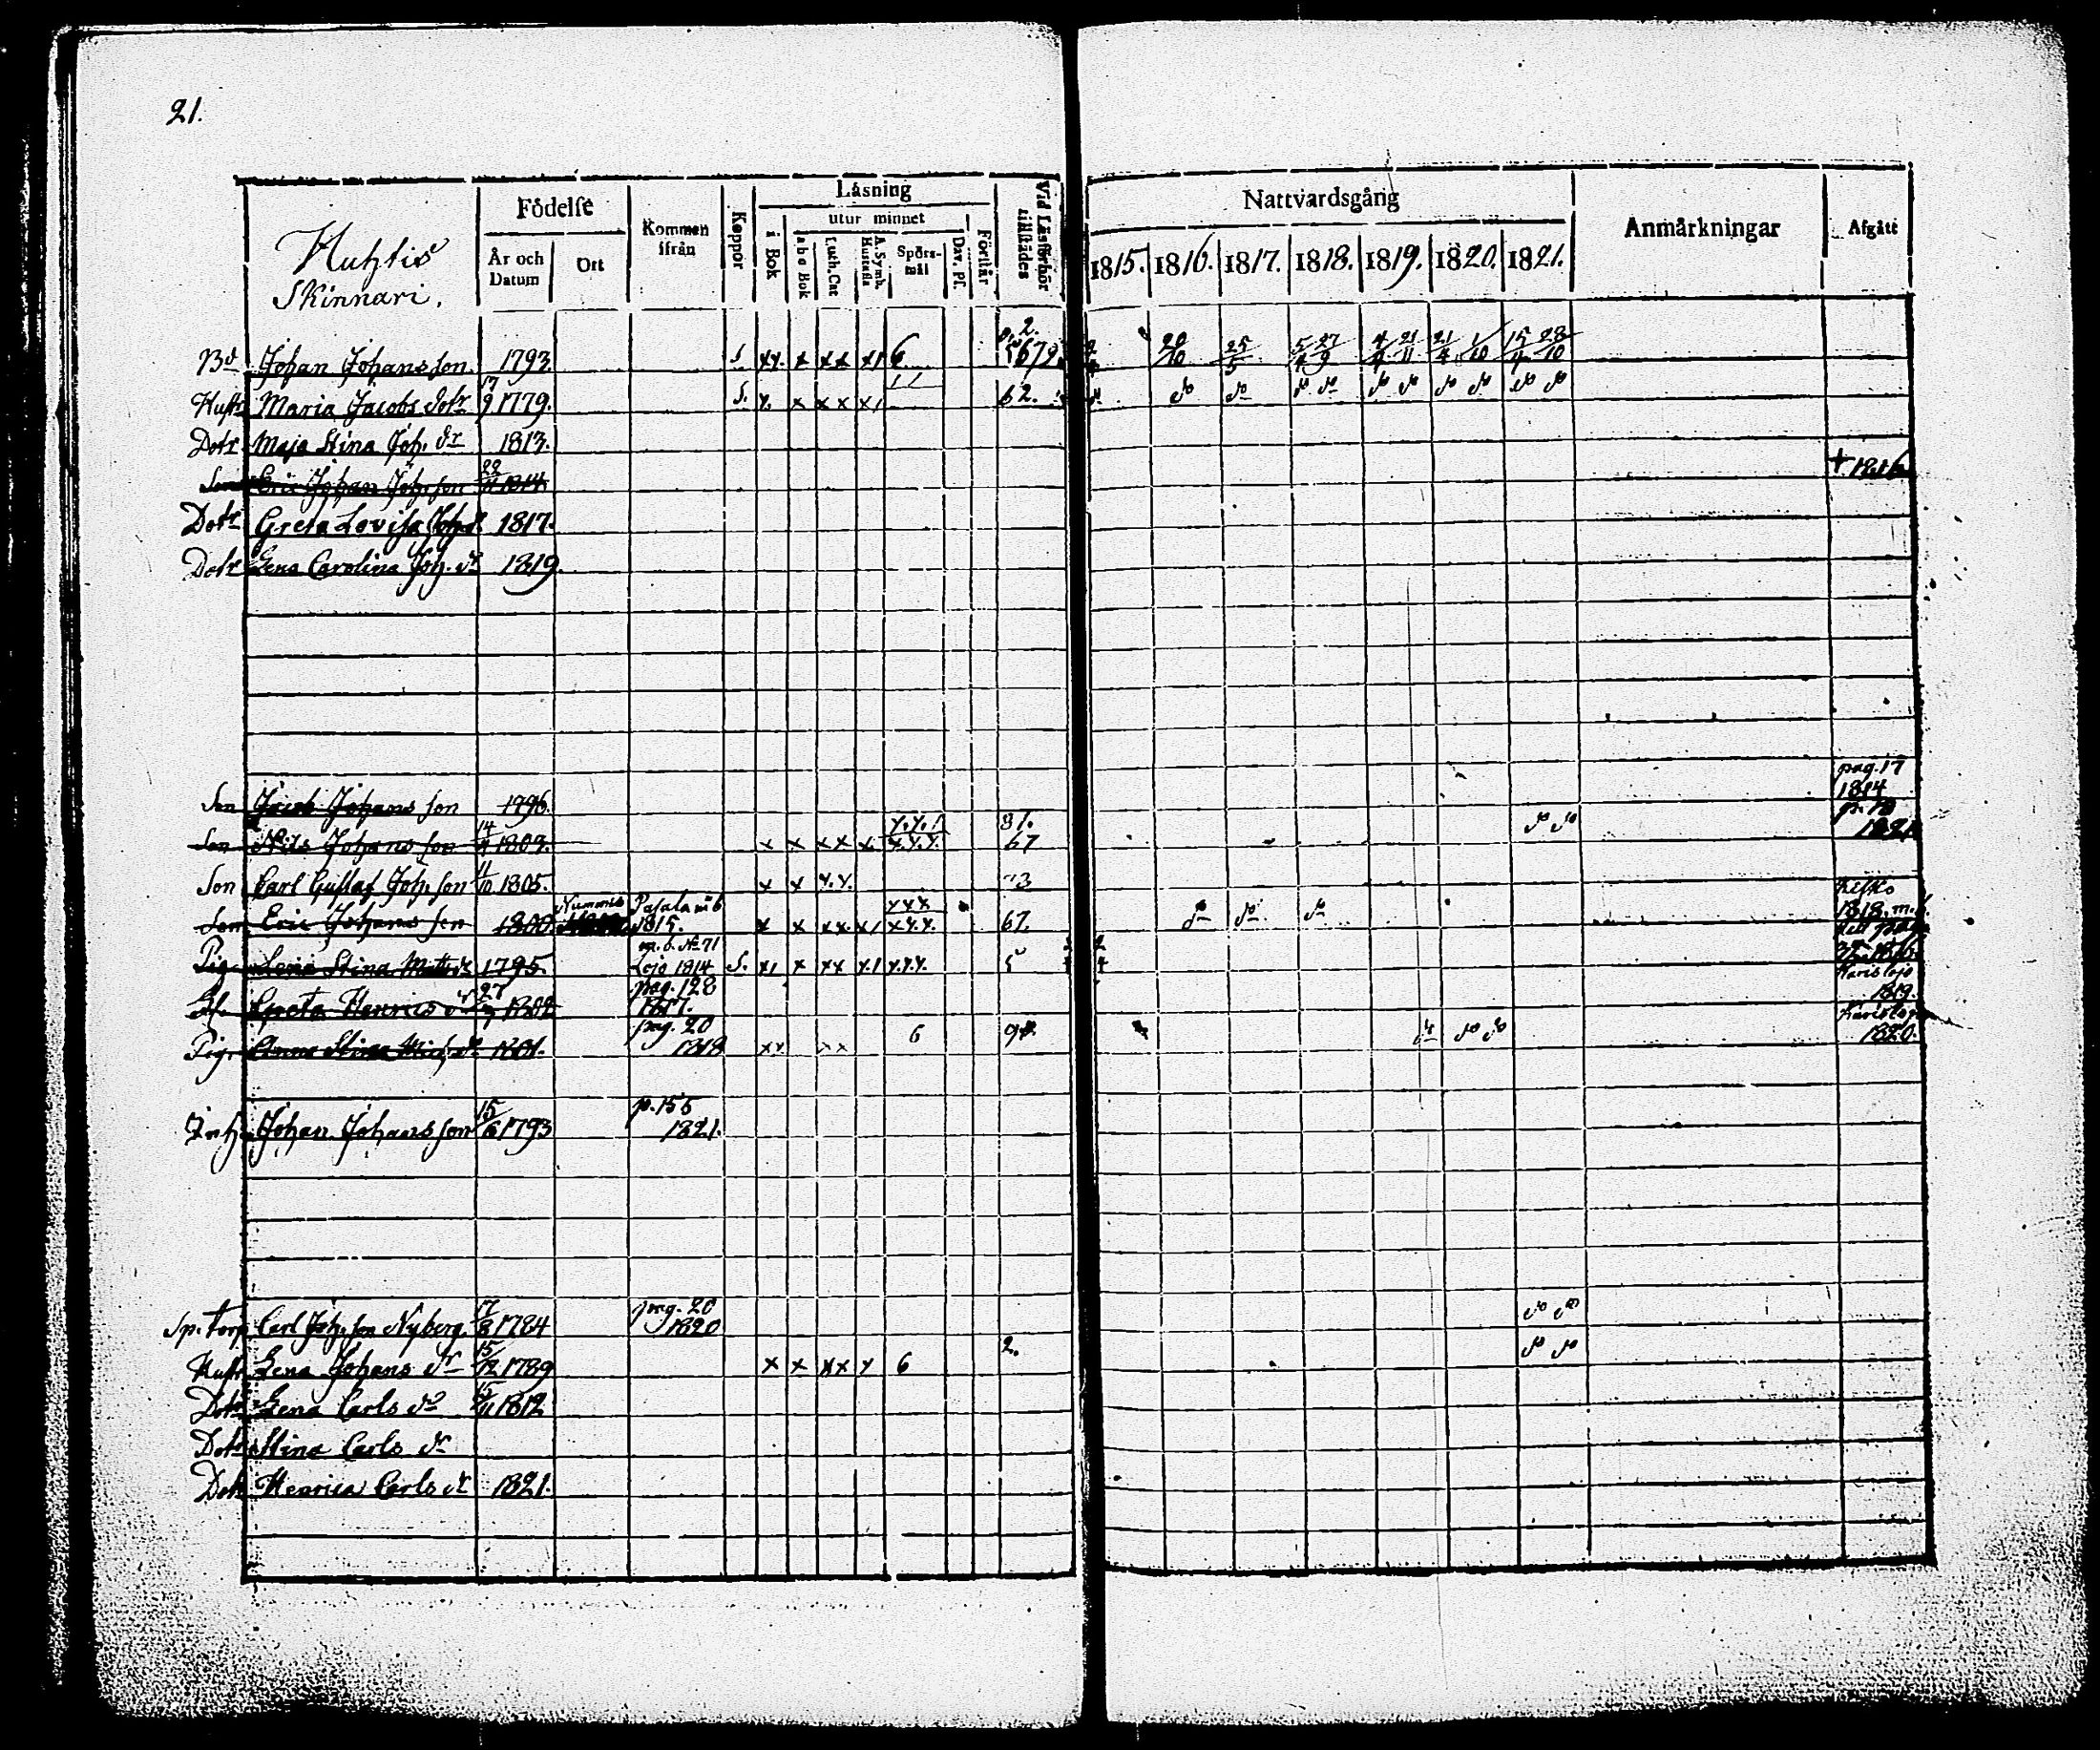 21.
Huhtis
Skinnari.
Födelse
År och Datum
Ort
Kommen ifrån
Koppor
Läsning
i Bok
utur minnet
a b c Bok
Luth. Cat
A. Symb. Hustafla
Spörsmål
Dav. Ps.
Förstår
Vid Läsförhör tillstädes
Nattvardsgång
1815. 1816. 1817. 1818. 1819. 1820. 1821.
Anmärkningar
Afgått
Bd Johan Johansson 1793. S xx. x xx x1 6 5672 20/10 25/5 5/4 27/9 4/4 21/11 21/4 1/10 15/4 28/10
Hustr Maria Jacobs dotr 17/9 1779. S. x. x xx x1 62. do do do do do do do do do do
Dotr Maja Stina Joh. dr 1813.
Son Eric Johan Joh. son 22/11 1814. + 1816
Dotr Greta Lovisa Joh. d. 1817.
Dotr Lena Carolina Joh. dr 1819.
Son Jacob Johans son 1796. pag. 17 1814
Son Nils Johans son 14/4 1803. x x xx x. x.x.1 x.x.x. 81. 67 do do 1821
Son Carl Gustaf Joh. son 11/10 1805. x x x.x. 73
Son Eric Johans son 1800. Nummis 1815. x x xx. x1 xxx x.x.x. 67. do do do 1818.
Pig. Lena Stina Matts dr 1795. m. 6. No 71 Lojo 1814 S. x1 x xx x.1 x.x.x. 5
Greta Henrics dr 27 1802 pag. 128 1817. Karislojo 1819.
Pig. Anna Stina Mich. dr 1801. pag. 20 1818 xx xx 6 9 do do Karislojo 1820.
Inh. Johan Johans son 15/6 1793 p. 155 1821.
Sp. torp Carl Joh. son Nyberg. 17/8 1784 pag. 20 1820 do do
Hustr Lena Johans dr 15/12 1789 x x xx x 6 2. do do
Dotr Lena Carls dr 15/11 1812
Dotr Stina Carls dr
Dotr Henrica Carls dr 1821.